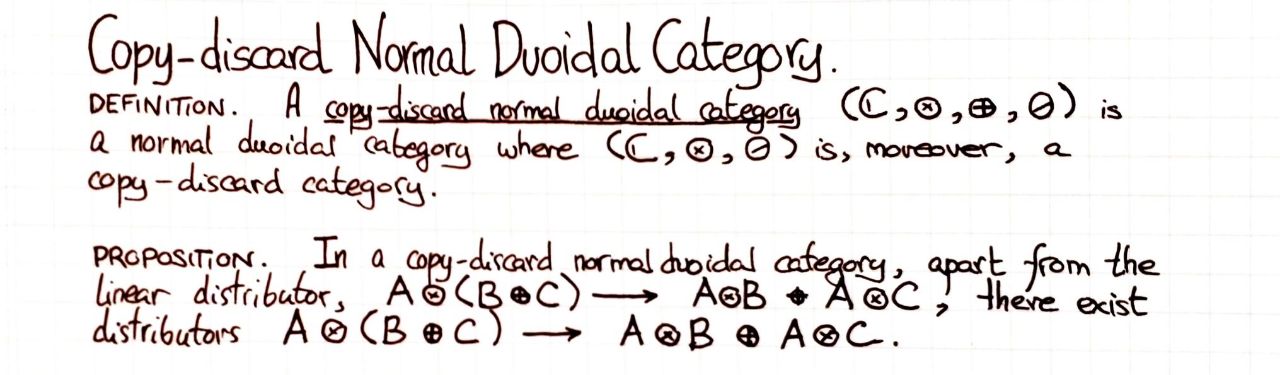 Copy-discard Normal Duoidal Category.
DEFINITION. A copy-discard normal duoidal category (ℂ, ⊗, ⊕, ⊘) is
a normal duoidal category where (ℂ, ⊗, ⊘) is, moreover, a
copy-discard category.
PROPOSITION. In a copy-discard normal duoidal category, apart from the
linear distributor, A ⊗ (B ⊕ C) ⟶ A ⊗ B ⊕ A ⊗ C, there exist
distributors A ⊗ (B ⊕ C) ⟶ A ⊗ B ⊕ A ⊗ C.